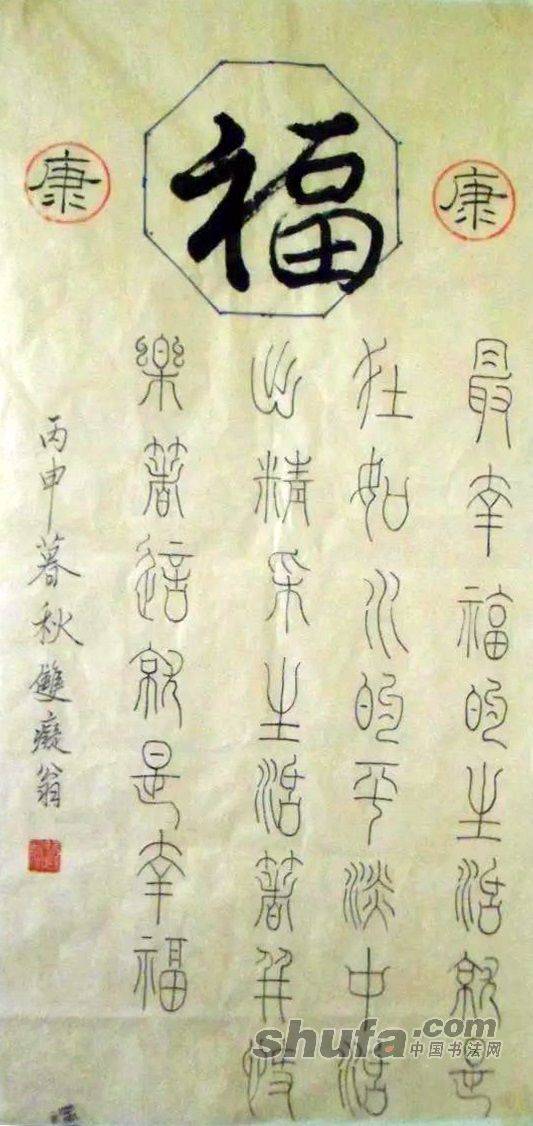 康
福
康
最幸福的生活就是
在如水的平淡中活
出精采生活著并快
樂著這就是幸福
丙申暮秋雙癡翁
shufa.com
中国书法网